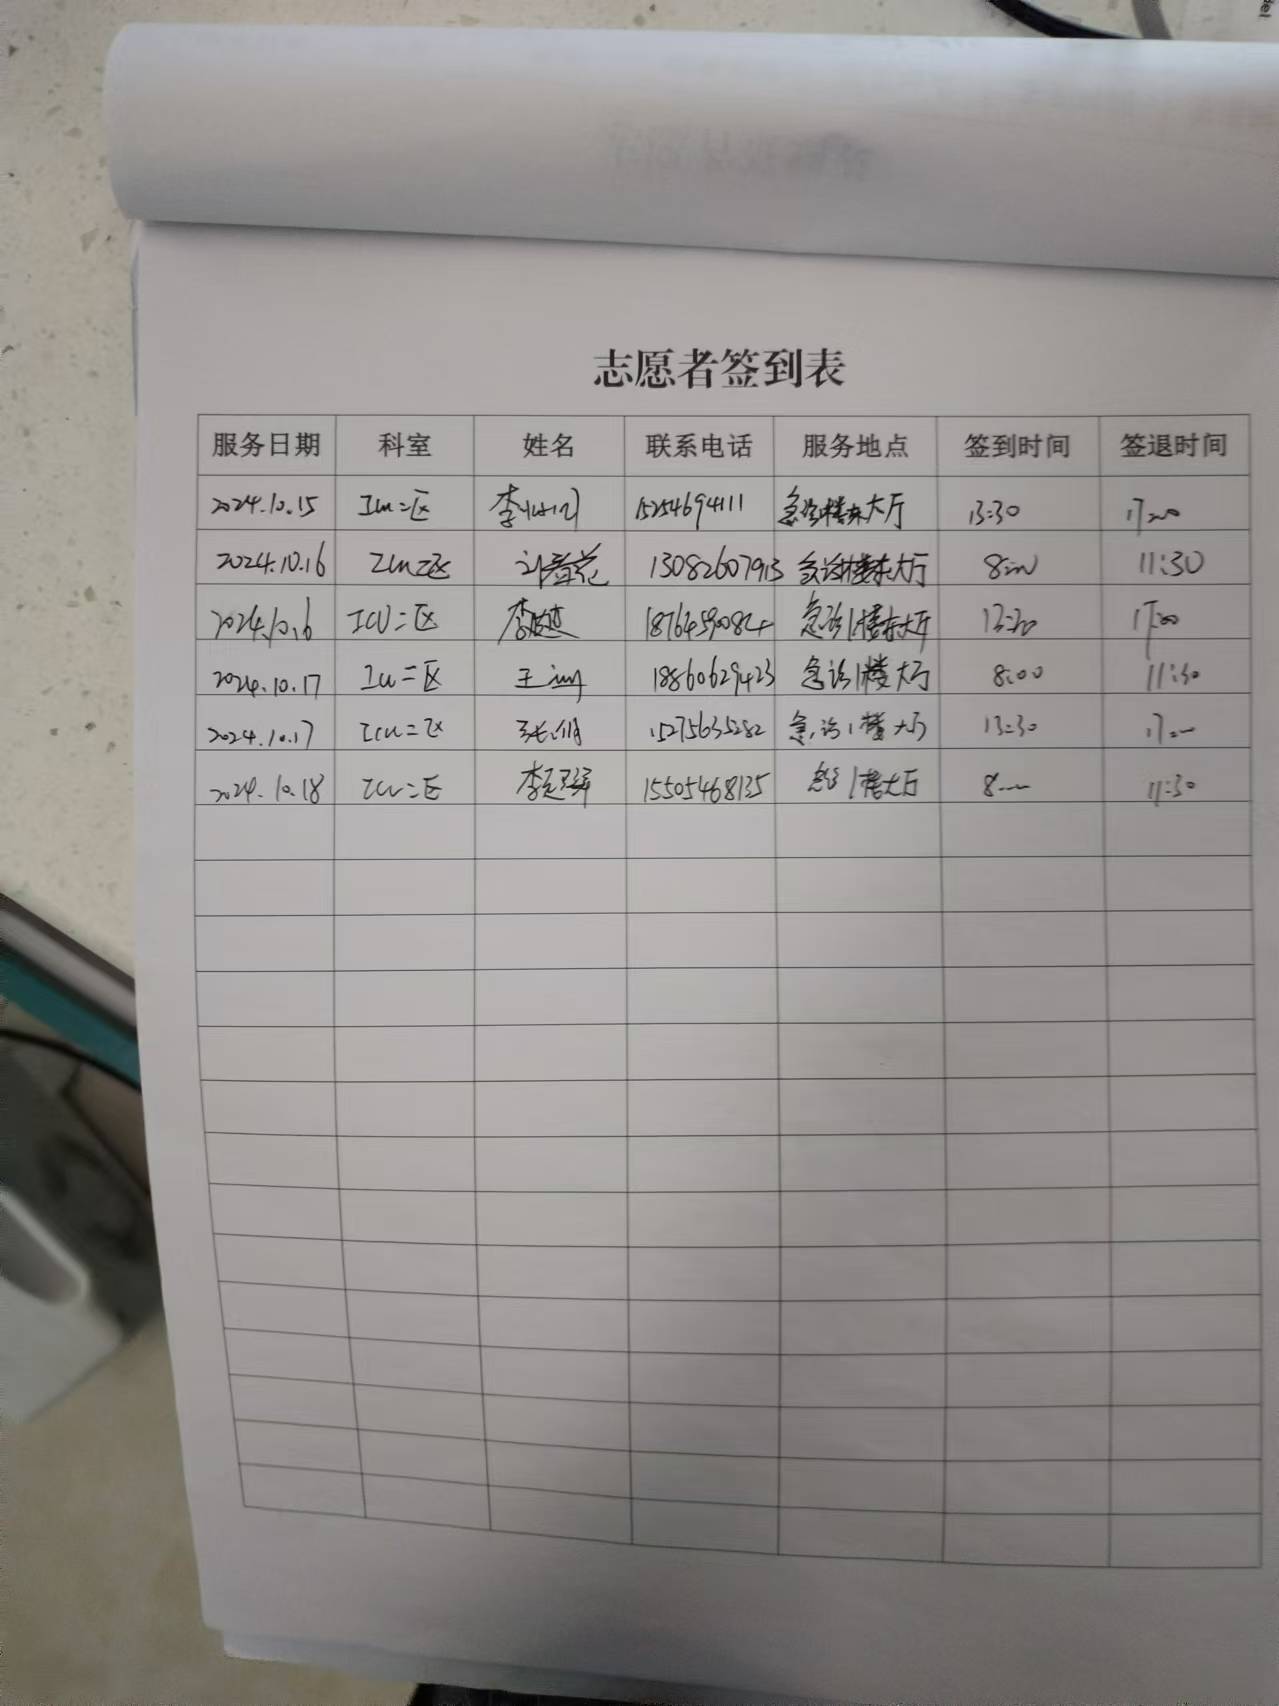 志愿者签到表
服务日期 科室 姓名 联系电话 服务地点 签到时间 签退时间
2024.10.15 ICU二区 李 15254694111 急诊楼东大厅 13:30 17:00
2024.10.16 ICU二区 13082607913 急诊楼东大厅 8:00 11:30
2024.10.16 ICU二区 李 18764590824 急诊1楼东大厅 13:30 17:00
2024.10.17 ICU二区 王 18860629423 急诊1楼大厅 8:00 11:30
2024.10.17 ICU二区 张 15275635282 急诊1楼大厅 13:30 17:00
2024.10.18 ICU二区 李 15505468135 急诊1楼大厅 8:00 11:30